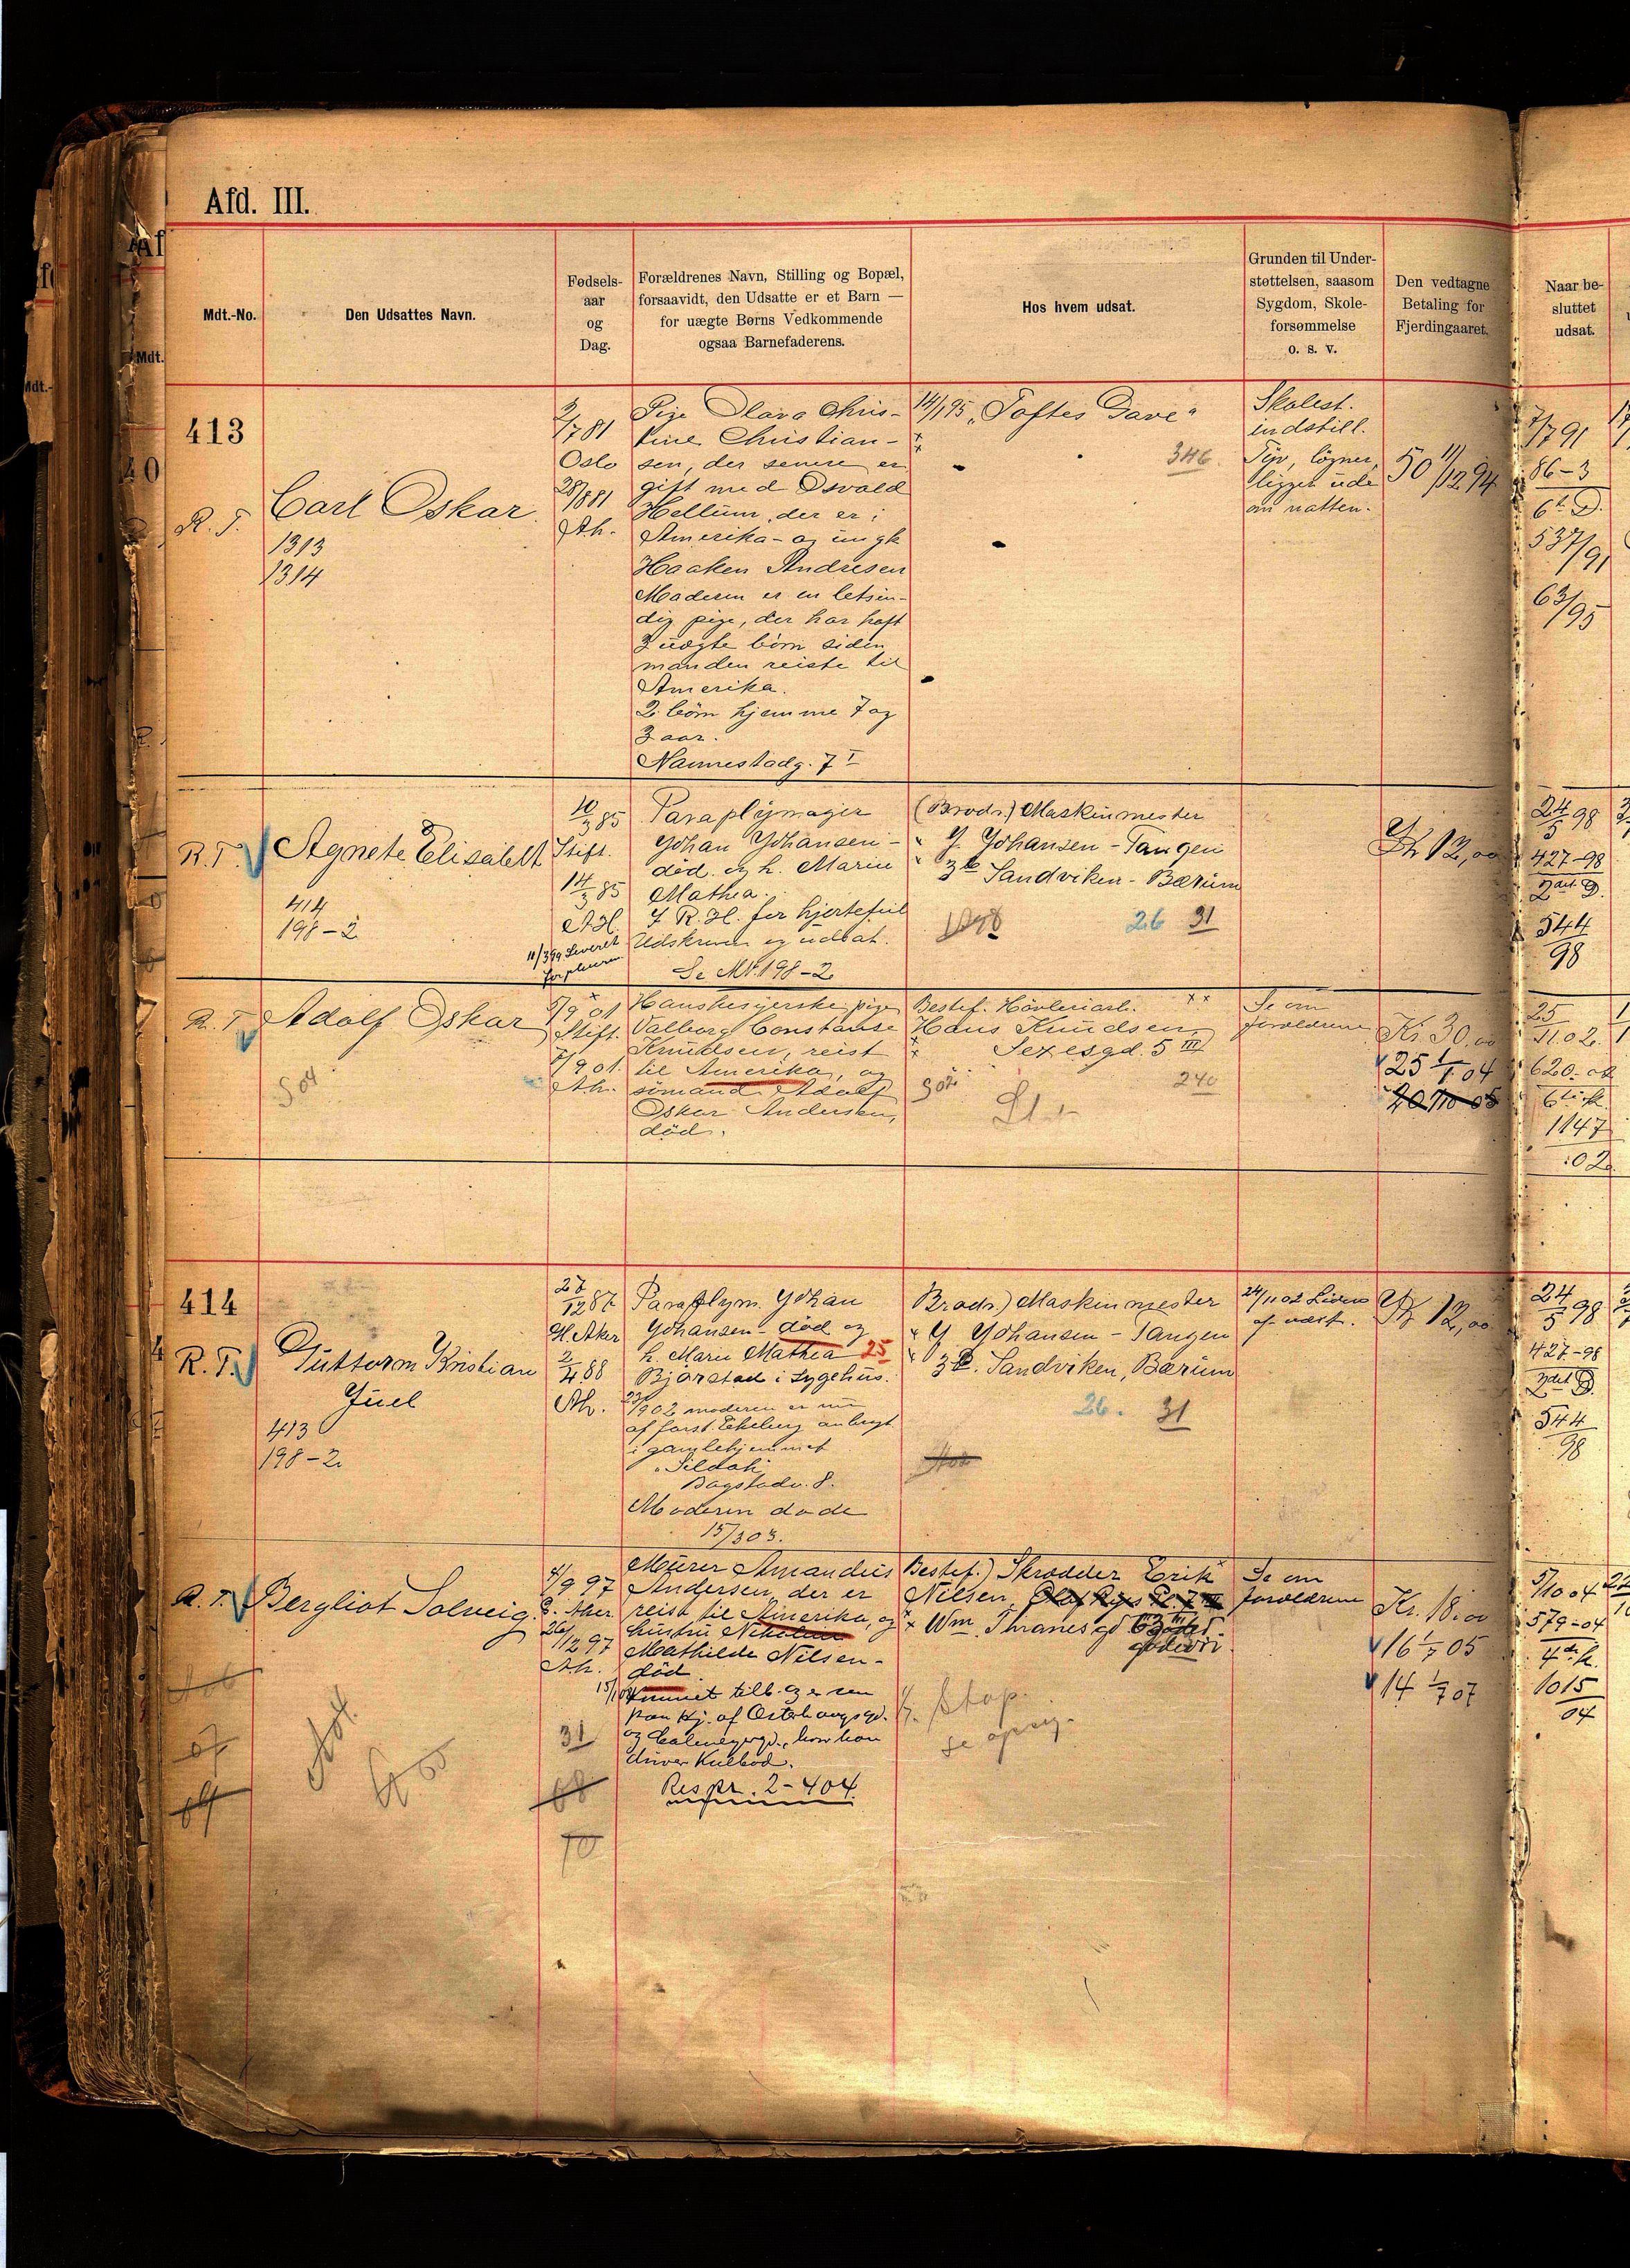 Afd. III.
Mdt.-No.
Den Udsattes Navn.
Fødsels-
aar
og
Dag.
Forældrenes Navn, Stilling og Bopæl,
forsaavidt, den Udsatte er et Barn —
for uægte Børns Vedkommende
ogsaa Barnefaderens.
Hos hvem udsat.
Grunden til Under-
støttelsen, saasom
Sygdom, Skole-
forsømmelse
o. s. v.
Den vedtagne
Betaling for
Fjerdingaaret.
Naar be-
sluttet
udsat.
413
R. T.
Carl Oskar
1313
1314
2/7 81
Oslo
28/8 81
A.h.
Pige Olava Chris-
tine Christian-
sen, der senere er
gift med Osvald
Hellum, der er i
Amerika - og ungk
Haaken Andresen
Moderen er en letsin-
dig pige, der har haft
3 uægte børn siden
manden reiste til
Amerika.
2 børn hjemme 7 og
3 aar.
Nannestadg. 7 I
14/1 95 „Toftes Gave"
346
Skolest.
indstill.
Tyv, løgner,
ligger ude
om natten.
50 11/12 94
7/7 91
86-3
6te D.
537/91
63/95
R.T.
Agnete Elisabeth
414
198-2
10/3 85
Stift.
14/3 85
A.H.
11/3 99 Leveret
forpleieren
Paraplymager
Johan Johansen -
død og h. Marie
Mathea.
I R. H. for hjertefeil
Udskreven og udsat.
Se Mt. 198-2
(Brodr.) Maskinmester
J. Johansen - Tangen
Sandviken - Bærum
26 31
Kr 12,00
24/5 98
427-98
2det D.
544
98
R. T.
Adolf Oskar
504
5/9 01
Stift.
7/9 01.
A.h.
Hanskesyerske pige
Valborg Constanse
Knudsen, reist
til Amerika, og
sømand Adolf
Oskar Andersen,
død.
Bestef. Høvleriarb.
Hans Knudsen
Sexesgd. 5 III
240
Se om
forældrene
Kr. 30,00
25 1/1 04
25
11.02.
620-02
6te k.
1147
02
414
R. T.
Guttorm Kristian
Juel
413
198-2
27/12 87
St. Aker
2/4 88
Ah.
Paraplym. Johan
Johansen - død og
h. Marie Mathea 25
Bjørstad i sygehus.
902 moderen er nu
af forst. Ekeberg anbragt
i gamlehjemmet
Bogstadv. 8.
Moderen døde
15/3 03.
Brodr.) Maskinmester
J Johansen - Tangen
Sandviken, Bærum
26. 31
24/11 02
af udst.
Kr 12,00
24/5 98
427-98
2det D.
544
98
R. T.
Bergliot Solveig
4/9 97
Aker
26/12 97
A.h.
31
68
70
Murer Amandus
Andersen, der er
reist til Amerika, og
hustru Nikoline
Mathilde Nilsen -
død
Kommet tilb. og er sen
paa hj. af Østerhaugsgd.
hvor han
driver Kulbod.
Res pr. 2-404.
Bestef.) Skrædder Erik
Nilsen, Olaf Ryes Pl. 7 III
Wm. Thranes gd
Stop.
se opsig.
Se om
forældrene
Kr. 18.00
16 1/7 05
14 1/7 07
5/10 04
579-04
4de k.
1015
04